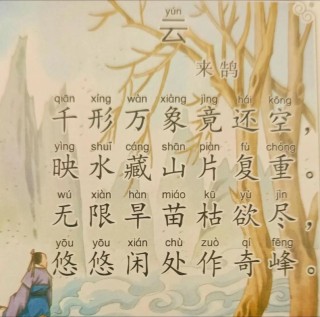 yún
云
来鹄
qiān xíng wàn xiàng jìng hái kōng
千形万象竟还空，
yìng shuǐ cáng shān piàn fù chóng
映水藏山片复重。
wú xiàn hàn miáo kū yù jìn
无限旱苗枯欲尽，
yōu yōu xián chù zuò qí fēng
悠悠闲处作奇峰。